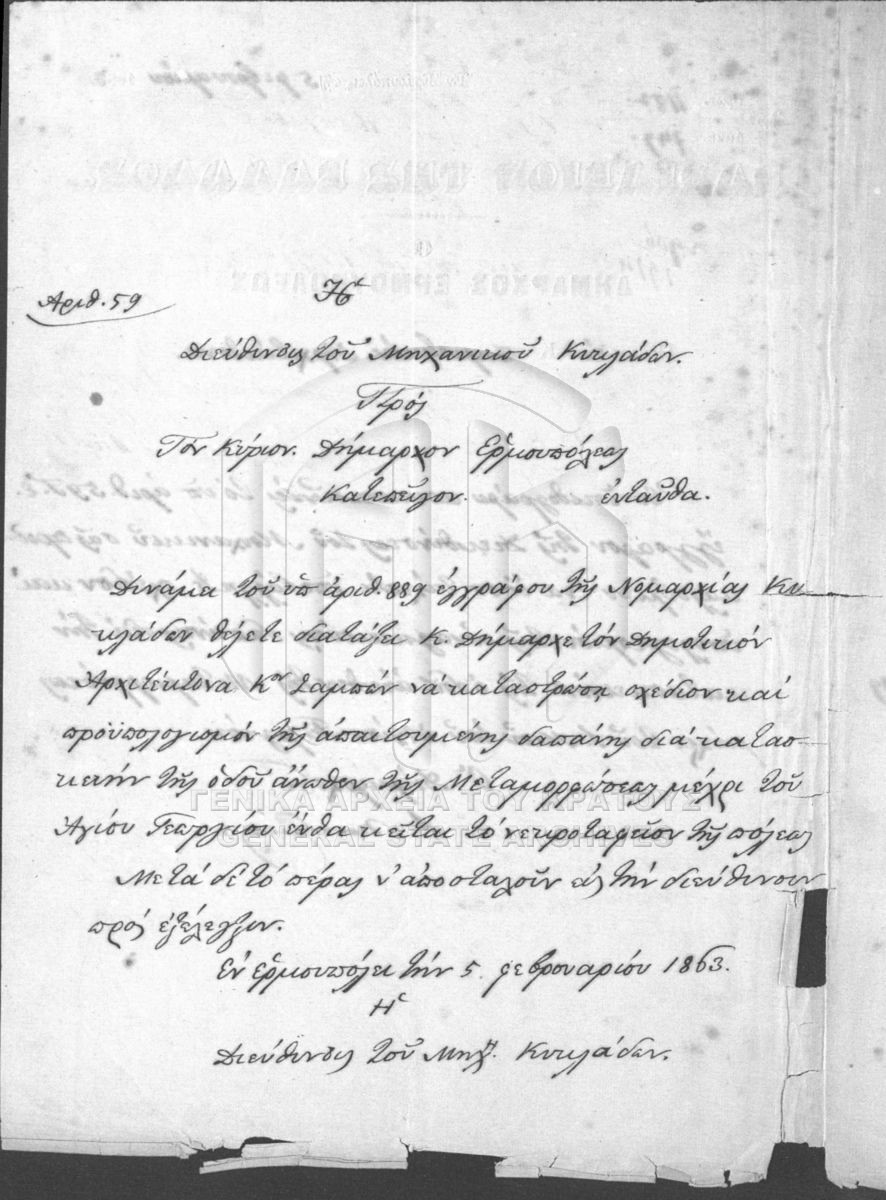 Αριθ. 59
Ἡ
Διεύθυνσις τοῦ Μηχανικοῦ Κυκλάδων.
Πρός
Τον Κύριον. Δήμαρχον Ερμουπόλεως
Κατεπεῖγον. ἐνταῦθα.
Δυνάμει τοῦ ὑπ ἀριθ. 889 ἐγγράφου τῆς Νομαρχίας Κυ-
κλάδων θέλετε διατάξει Κ. Δήμαρχε τόν Δημοτικόν
Αρχιτέκτονα Κον Σαμπώ νά καταστρώσῃ σχέδιον καί
προϋπολογισμόν τῆς ἀπαιτουμένης δαπάνης διά κατασ-
κευήν τῆς ὁδοῦ ἄνωθεν τῆς Μεταμορφώσεως μέχρι τοῦ
Αγίου Γεωργίου ἔνθα κεῖται τό νεκροταφεῖον τῆς πόλεως
Μετά δέ τό πέρας ν' ἀποσταλοῦν εἰς τήν διεύθυνσιν
πρός ἐξέλεγξιν.
Εν Ερμουπόλει τήν 5 φεβρουαρίου 1863.
Ἡ
Διεύθυνσις τοῦ Μηχ. Κυκλάδων.
ΓΕΝΙΚΑ ΑΡΧΕΙΑ ΤΟΥ ΚΡΑΤΟΥΣ
GENERAL STATE ARCHIVES